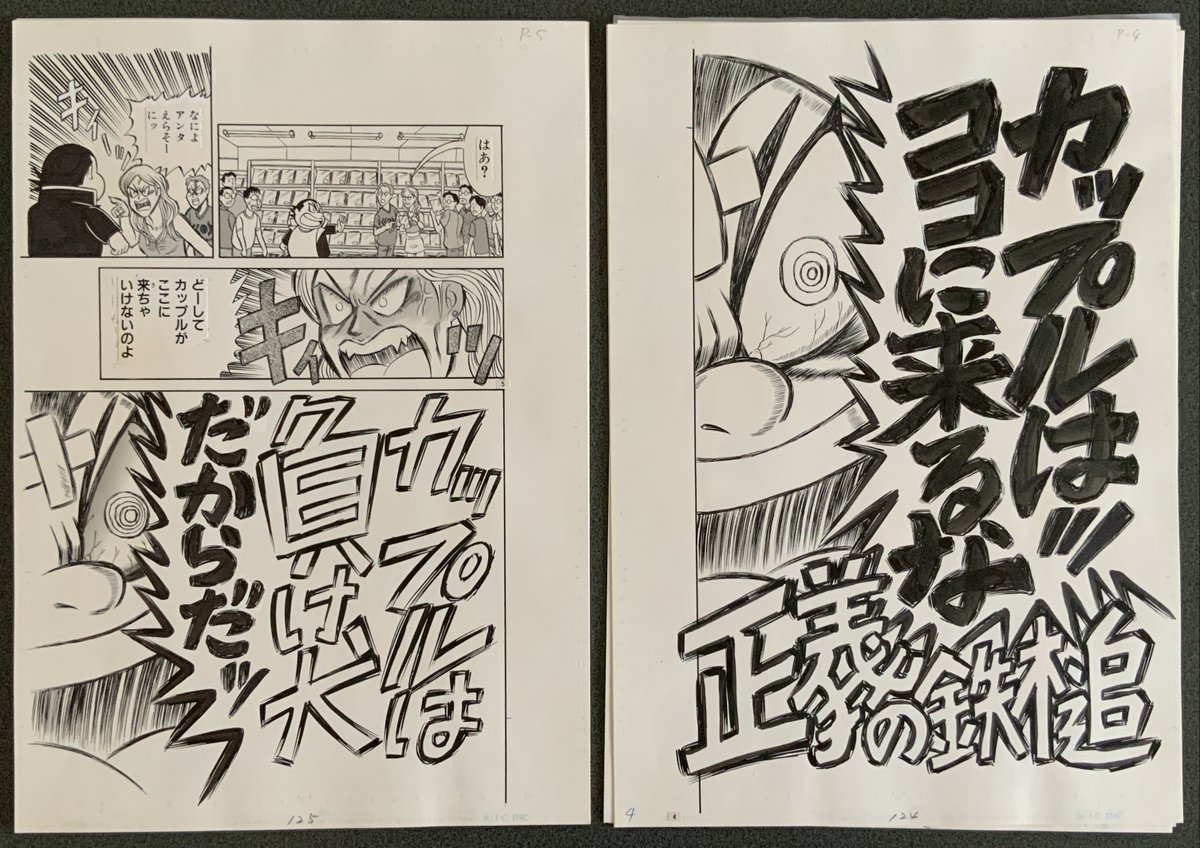 P-4
カップルはッ
ココに来るな
正義の鉄槌
4
4
124
I・C INC
P-5
はあ?
なによ
アンタ
えらそー
にッ
キィ
どーして
カップルが
ここに
来ちゃ
いけないのよ
キィッ
5
カップルは
負け犬
だからだッ
125
I・C INC